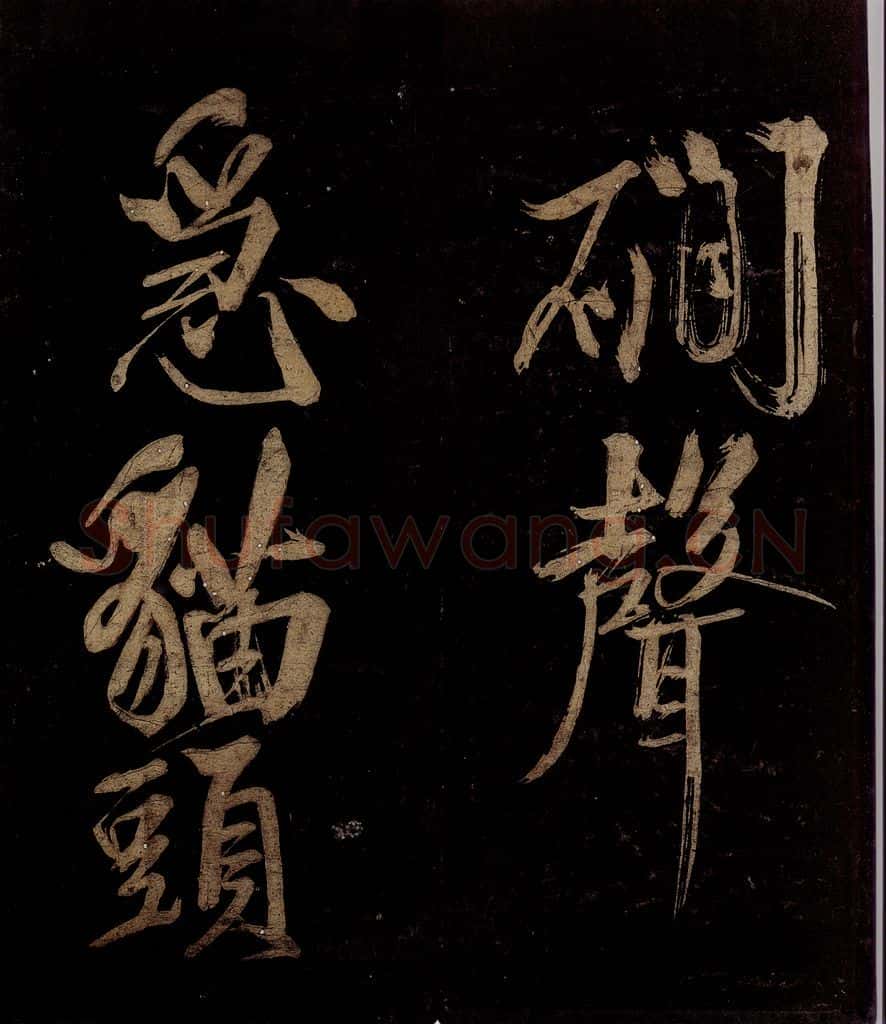 磵聲
急貓頭
Shufawang.CN